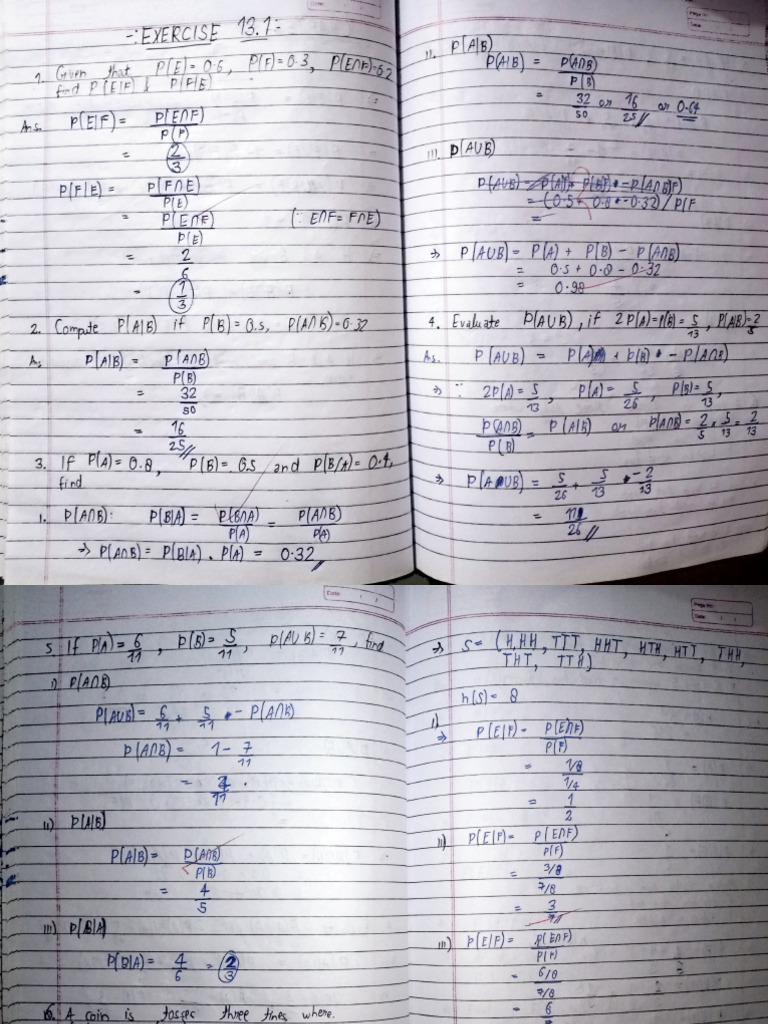 -: EXERCISE 13.1 :-
1. Given that P(E) = 0.6, P(F) = 0.3, P(E∩F) = 0.2
find P(E|F) & P(F|E)
Ans. P(E|F) = P(E∩F)/P(F)
= 2/3
P(F|E) = P(F∩E)/P(E)
= P(E∩F)/P(E) (∵ E∩F = F∩E)
= 2/6
= 1/3
2. Compute P(A|B) if P(B) = 0.5, P(A∩B) = 0.32
As P(A|B) = P(A∩B)/P(B)
= 32/50
= 16/25//
3. If P(A) = 0.8, P(B) = 0.5 and P(B/A) = 0.4,
find
1. P(A∩B): P(B|A) = P(B∩A)/P(A) = P(A∩B)/P(A)
⇒ P(A∩B) = P(B|A) . P(A) = 0.32//
11. P(A|B)
P(A|B) = P(A∩B)/P(B)
= 32/50 or 16/25// or 0.64
111. P(A∪B)
= (0.5 + 0.8 - 0.32) / P(F
=
⇒ P(A∪B) = P(A) + P(B) - P(A∩B)
= 0.5 + 0.8 - 0.32
= 0.98
4. Evaluate P(A∪B), if 2P(A) = P(B) = 5/13, P(A|B) = 2/5
As. P(A∪B) = P(A) + P(B) - P(A∩B)
⇒ ∵ 2P(A) = 5/13, P(A) = 5/26, P(B) = 5/13,
P(A∩B)/P(B) = P(A|B) or P(A∩B) = 2/5 . 5/13 = 2/13
⇒ P(A∪B) = 5/26 + 5/13 - 2/13
= 11/26//
Date: / /
5. If P(A) = 6/11, P(B) = 5/11, P(A∪B) = 7/11, find
i) P(A∩B)
P(A∪B) = 6/11 + 5/11 - P(A∩B)
P(A∩B) = 1 - 7/11
= 4/11.
11) P(A|B)
P(A|B) = P(A∩B)/P(B)
= 4/5
111) P(B|A)
P(B|A) = 4/6 = 2/3
6. A coin is tosses three times where.
Page No:
Date: / /
⇒ S = (H,HH, TTT, HHT, HTH, HTT, THH,
THT, TTH)
n(S) = 8
1)
⇒ P(E|F) = P(E∩F)/P(F)
= 1/8/1/4
= 1/2
11) P(E|F) = P(E∩F)/P(F)
= 3/8/7/8
= 3/7//
111) P(E|F) = P(E∩F)/P(F)
= 6/8/7/8
= 6/7